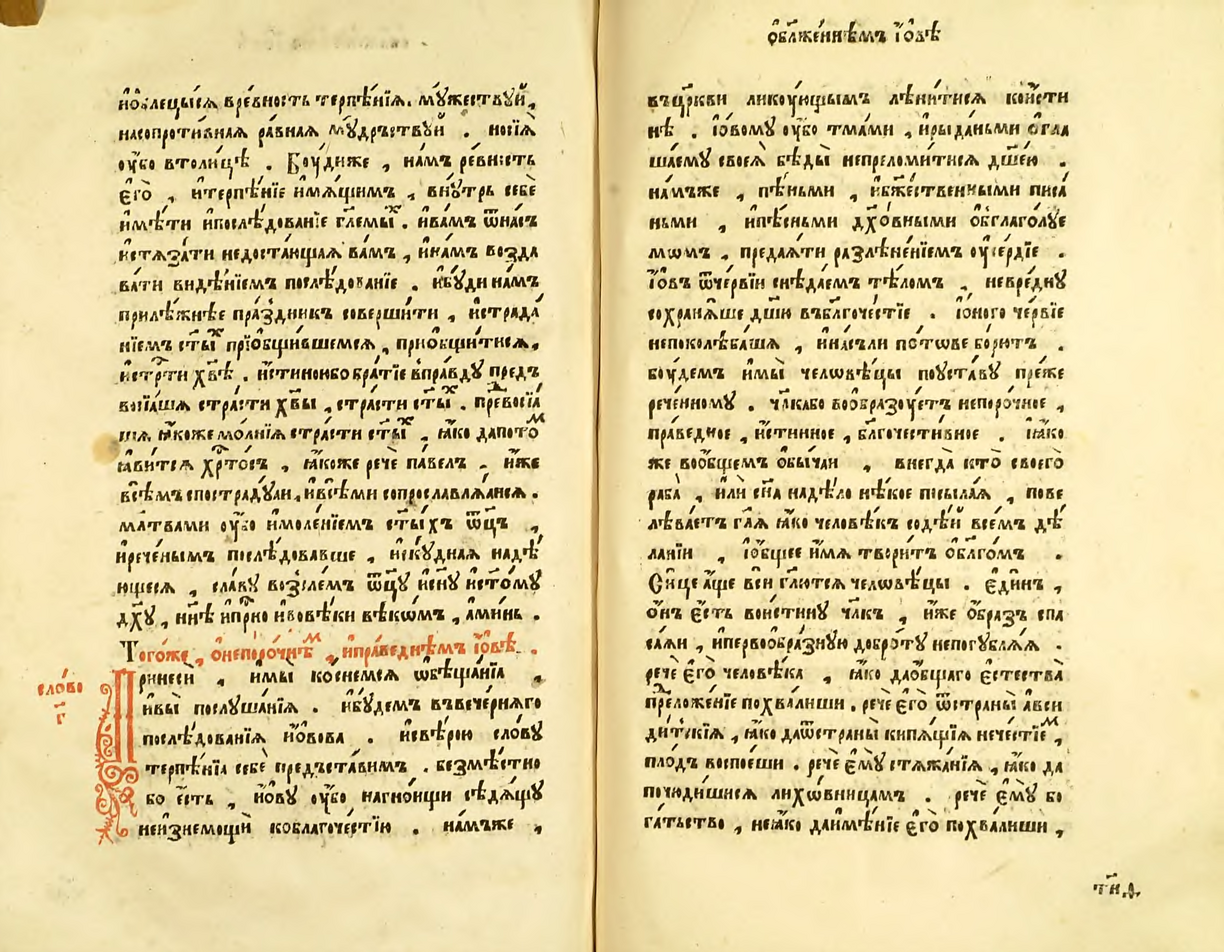 и҆облецы́сѧ вре́вность терпѣ́нїѧ. мꙋ́жествꙋи҆,
насопроти́внаѧ ра́внаѧ мꙋ́дръствꙋи . носїѧ̀
ᲂу҆́бо втоли́цѣ . Бꙋ́диже , на́мъ ре́вность
є҆го̀ , и҆терпѣ́нїе и҆мѧ́щимъ , внꙋ́трь себѐ
и҆мѣ́ти и҆послѣ́дованїе гл҃емы́х . и҆ва́мъ ѿна́съ
и҆стѧза́ти недоста́ющаѧ ва́мъ , и҆на́мъ возда
ва́ти ви́дѣнїемъ послѣ́дованїе . и҆бꙋ́ди на́мъ
прилѣ́жнѣе пра́здникъ соверши́ти , и҆страда́
нїемъ ст҃ы́х прїѻбщи́вшемсѧ , приѻбщи́тисѧ,
и҆стр҇ти хв҃ѣ . и҆́стинноибо бра́тїе впра́вдꙋ пред̾
восїѧ́шѧ стра́сти хв҃ы , стра́сти ст҃ы́х . превосїѧ́
шѧ ꙗ҆́коже мо́лнїѧ стра́сти ст҃ы́х , ꙗ҆́ко дапото́м
ꙗ҆́витсѧ хр҇то́съ , ꙗ҆́коже речѐ па́велъ . и҆́же
всѣ́мъ спострадꙋ́аи, и҆всѣ́ми сопрославлѧ́ѧисѧ .
мл҃твами ᲂу҆́бо и҆моле́нїемъ ст҃ы́хъ ѻ҆т҃цъ ,
и҆рече́нымъ послѣ́довавше , нескꙋ́днаѧ надѣ́
ющесѧ , сла́вꙋ возсле́мъ ѻ҆ц҃ꙋ и҆сн҃ꙋ и҆ст҃о́мꙋ
дх҃ꙋ , нн҃ѣ и҆пр҇но и҆вовѣ́ки вѣко́мъ , а҆ми́нь .
Того́же , ѻ҆непоро́чнѣм , и҆пра́веднѣмъ і҆́овѣ .
сло́во
г҃
Принеси̂ , и҆мы̀ ко́снемсѧ ѡ҆бѣща́нїѧ ,
и҆вы̀ послꙋша́нїѧ . и҆бꙋ́демъ въвече́рнѧго
послѣ́дованїѧ и҆о́вова . и҆свѣ́рою сло́вꙋ
терпѣ́нїѧ себѐ предъста́вимъ . безмѣ́стно
бо є҆́сть , и҆́овꙋ ᲂу҆́бо нагно́ищи сѣдѧ́щꙋ
неи҆знемощѝ коблагоче́стїю . на́мъже ,
ѻ҆бл҃же́ннѣмъ і҆́овѣ
въцр҃кви ликᲂу́ющымъ лѣни́тисѧ ко́исти
нѣ . і҆́овомꙋ ᲂу҆́бо тма́ми , и҆рыда́ньми ѻ҆гла
ша́емꙋ своеѧ̀ бѣды̀ непреломи́тисѧ дш҃е́ю .
на́мъже , пѣ́ньми , и҆бж҃е́ственными писа́
ньми , и҆пѣ́сньми дх҃о́вными ѻ҆бглаго́лꙋе
момъ , предаѧ́ти разлѣне́нїемъ ᲂу҆се́рдїе .
І҆́овъ ѿче́рвїи снѣда́емъ тѣ́ломъ , невре́днꙋ
сохранѧ́ше дш҃ю въблагоче́стїе . і҆́оного че́рвїе
непоколѣба́шѧ , и҆на́съли по́тове бо́рютъ .
бᲂу́демъ и҆мы̀ человѣ́цы поуста́вꙋ пре́же
рече́нномꙋ . чл҃ка́бо воѻбразᲂу́етъ непоро́чное ,
пра́ведное , и҆́стинное , благочести́вное . ꙗ҆́ко
же воѻ́бщемъ ѻ҆бы́чаи , внегда̀ кто̀ своего̀
раба̀ , и҆лѝ сн҃а надѣ́ло нѣ́кое посыла́ѧ , пове
лѣва́етъ гл҃ѧ ꙗ҆́ко человѣ́къ содѣ́й всемъ дѣ́
ланїи , і҆ѻ́бщее и҆́мѧ твори́тъ ѻ҆бл҃го́мъ .
Си́це а҆́ще вси гл҃ютсѧ человѣ́цы . є҆ди́нъ ,
ѻ҆́нъ є҆́сть вои́стинꙋ чл҃къ , и҆́же ѻ҆́бразъ спа
са́ѧи , и҆первоѻбра́знꙋю добро́тꙋ непогꙋблѧ́ѧ .
речѐ є҆го̀ человѣ́ка , ꙗ҆́ко даѻбща́го є҆стества̀
преложе́нїе похва́лиши . речѐ є҆го̀ ѿстраны̀ а҆вси
дити́скїѧ , ꙗ҆́ко даѿстраны̀ кипѧ́щїѧ нече́стїем ,
пло́дъ воспое́ши . речѐ є҆мꙋ̀ стѧжа́нїѧ , ꙗ҆́ко да
почюди́шисѧ лихо́вницамъ . речѐ є҆мꙋ̀ бо
га́тьство , неꙗ҆́ко даи҆мѣ́нїе є҆го̀ похва́лиши ,